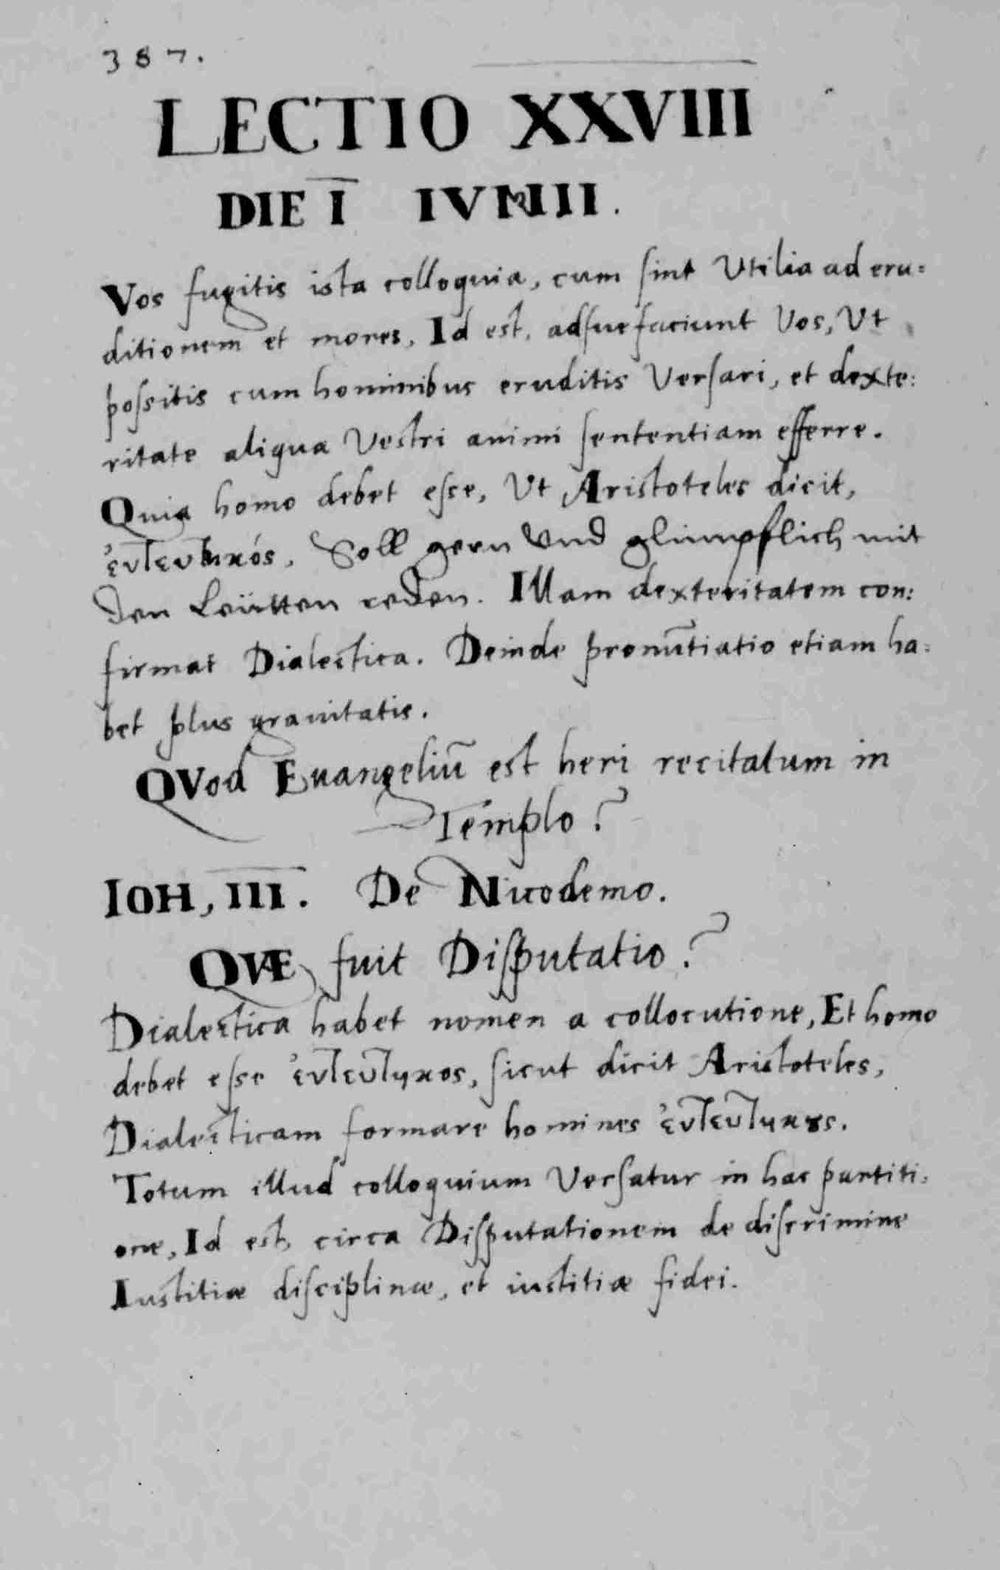 387.
LECTIO XXVIII
DIE I IVNIII.
Vos fugitis ista colloquia, cum sint Utilia ad eru:
ditionem et mores, Id est, adsuefaciunt Vos, Ut
possitis cum hominibus eruditis Versari, et dexte:
ritate aliqua Vestri animi sententiam efferre.
Quia homo debet esse, Ut Aristoteles dicit,
ἐντευκτικός. Soll gern Und glimpflich mit
den Leütten reden. Illam dexteritatem con:
firmat Dialectica. Deinde pronūtiatio etiam ha:
bet plus grauitatis.
QVod Euangeliū est heri recitatum in
Templo?
IOH, III. De Nicodemo.
QVÆ fuit Disputatio?
Dialectica habet nomen a collocutione, Et homo
debet esse ἐντευκτικος, sicut dicit Aristoteles,
Dialecticam formare homines ἐντευκτικȣς.
Totum illud colloquium Versatur in hac partiti:
one, Id est, circa Disputationem de discrimine
Iustitiæ disciplinæ, et iustitiæ fidei.